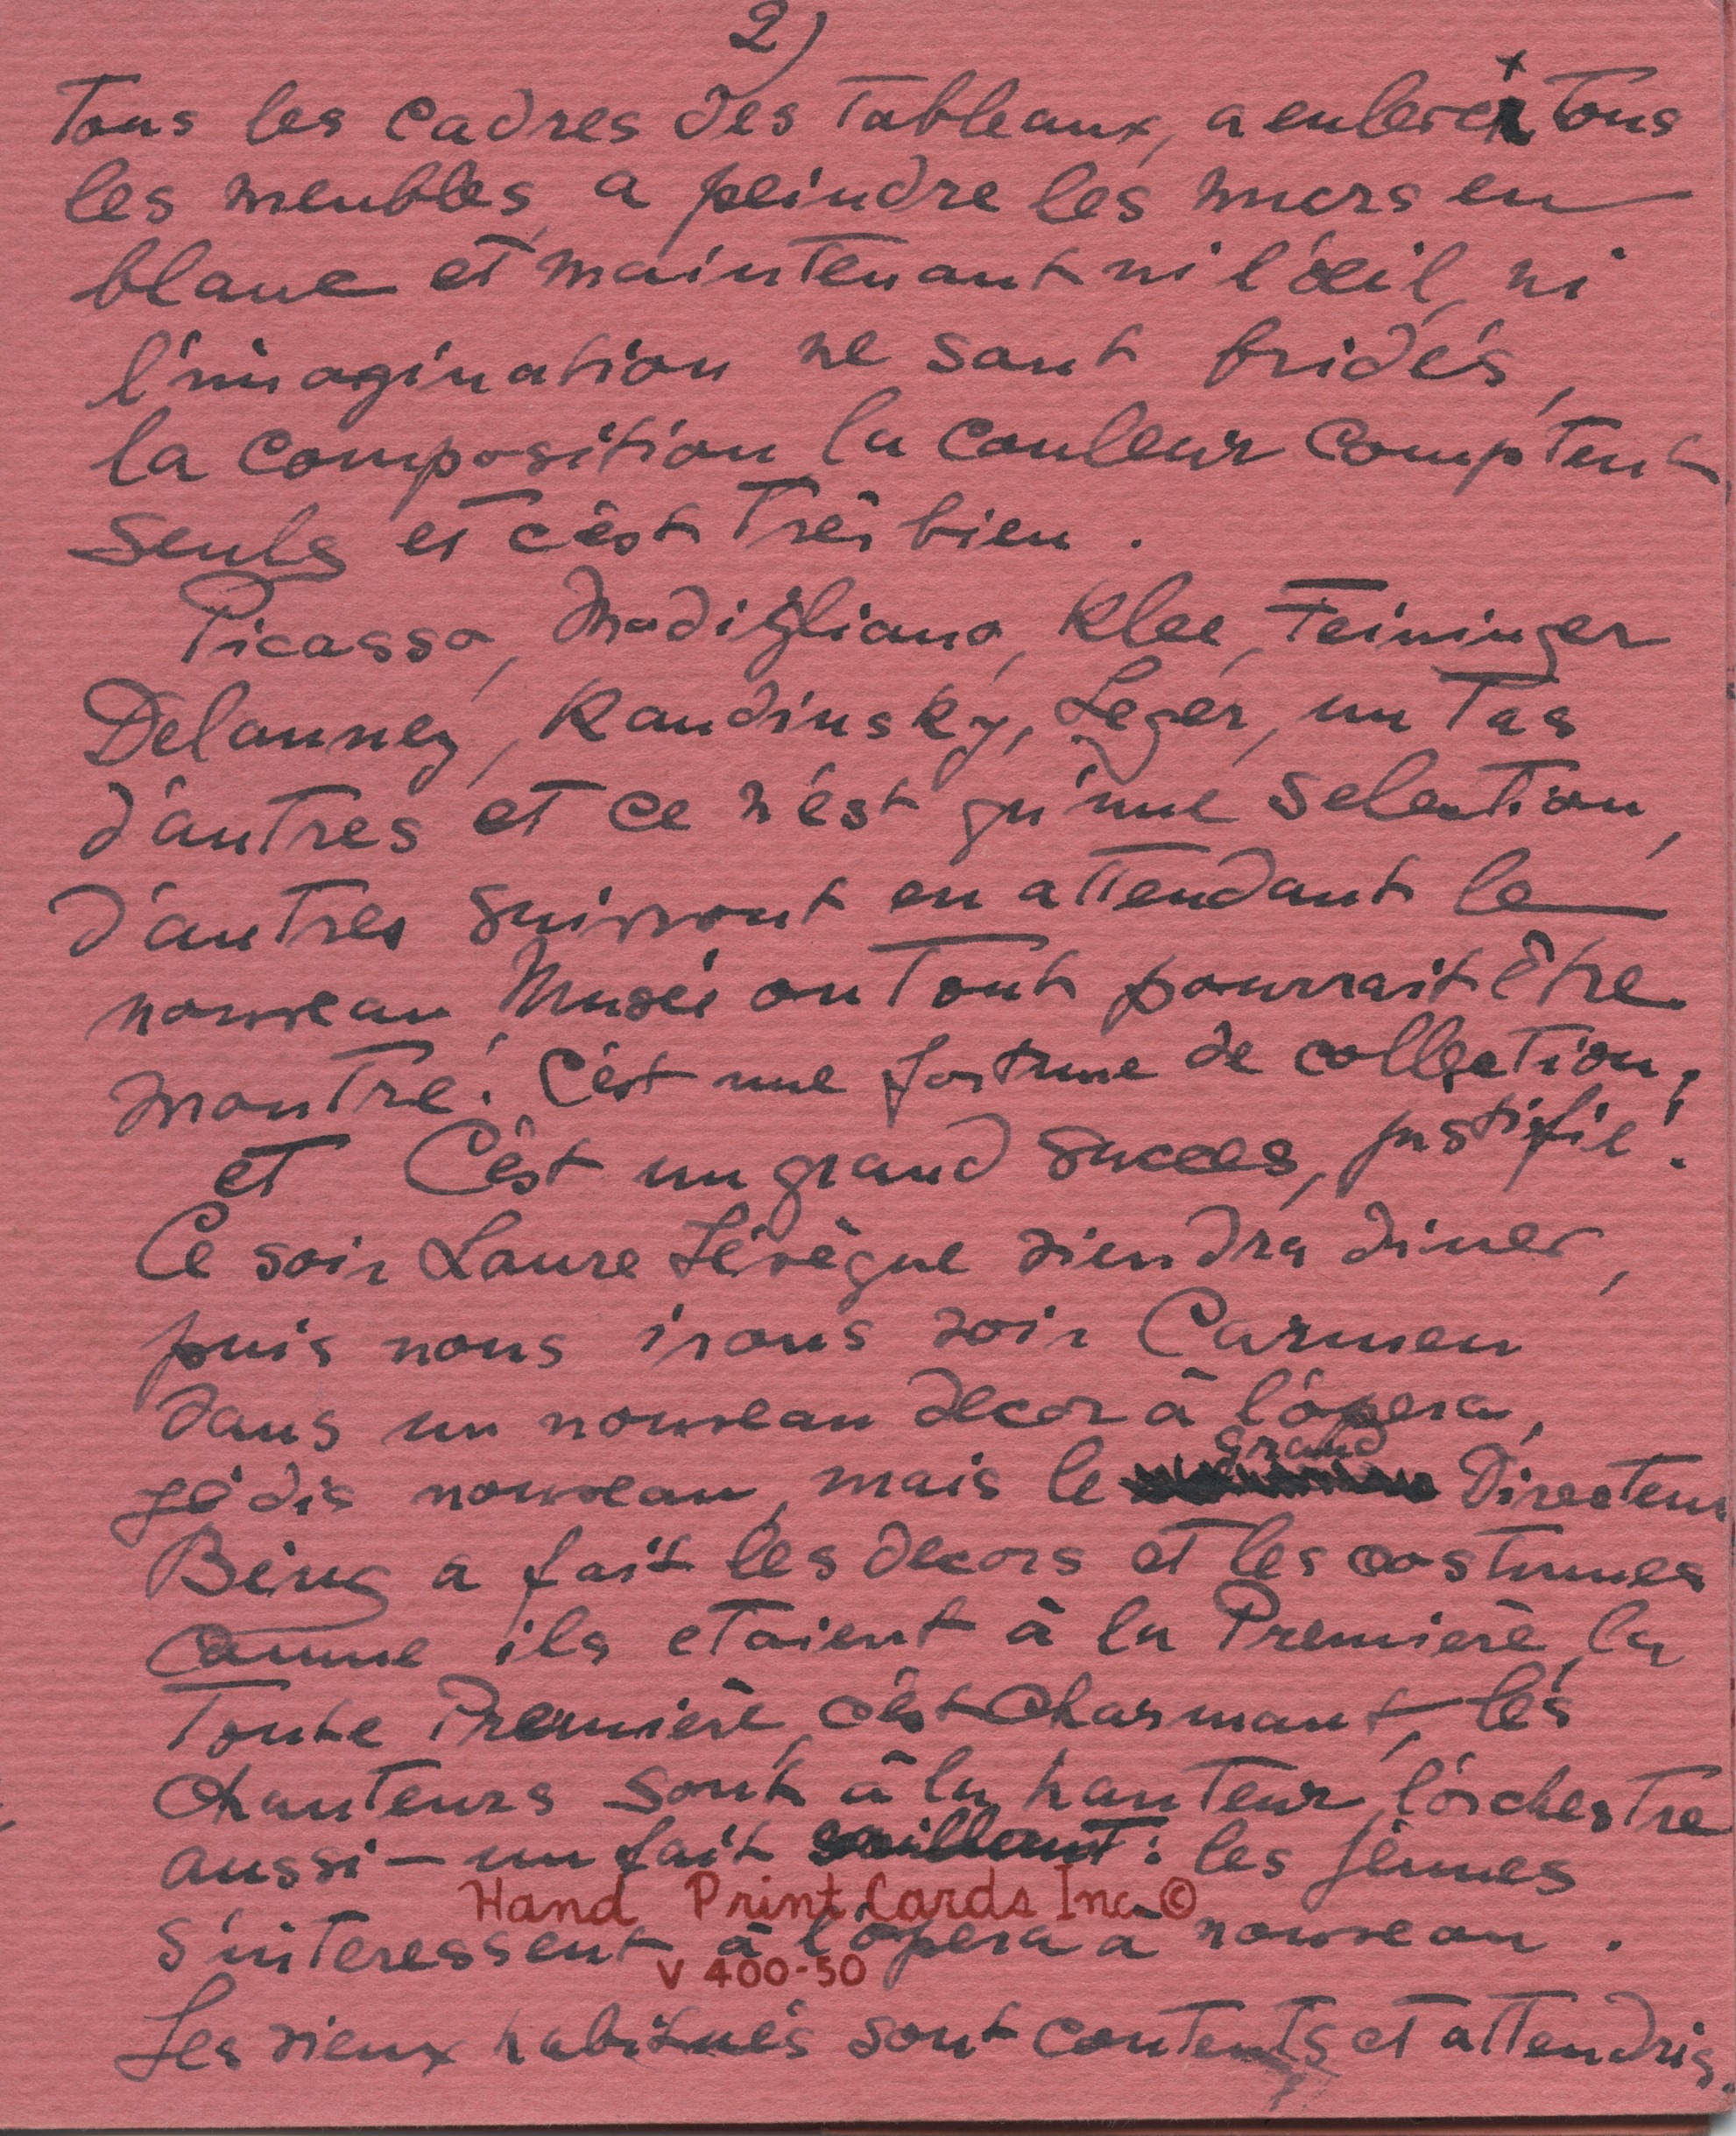 2)
Tous les cadres des Tableaux, a enlevé Tous
les meubles, a peindre les murs en
blanc et maintenant ni l'œil, ni
l'imagination ne sont bridés,
la composition, la couleur comptent
seuls et c'est Très bien.
Picasso, Modigliano, Klee, Feininger
Delauney, Kandinsky, Leger, un Tas
d'autres et ce n'est qu'une selection,
d'autres suivront en attendant le
nouveau Museé ou Tout pourrait être
montré! C'est une fortune de collection,
et C'est un grand succes, justifié!
Ce soir Laure Lévègue viendra diner,
puis nous irons voir Carmen
dans un nouveau decor à l'opera,
je dis nouveau, mais le grand Directeur
Bing a fait les decors et les costumes
comme ils etaient à la Premierè, la
Toute Premierè, c'est charmant, les
chanteurs sont à la hauteur, l'orchestre
aussi — un fait saillant: les jeunes
s'interessent à l'opera à nouveau.
Hand Print Cards Inc ©
V 400-50
Les vieux habitués sont contents et attendris.